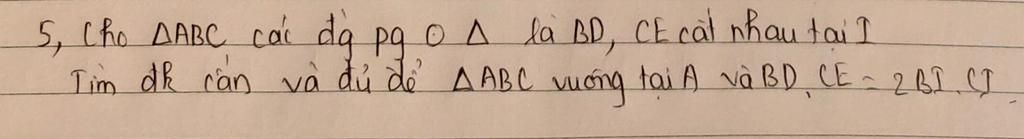 5, Cho ΔABC các đg pg ʘ Δ là BD, CE cắt nhau tại I
Tìm đk cần và đủ để ΔABC vuông tại A và BD. CE = 2BI. CI